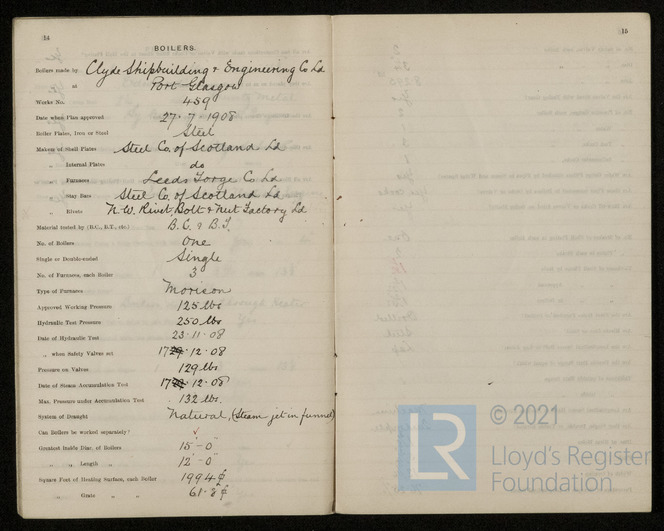 14
BOILERS.
Boilers made by Clyde Shipbuilding & Engineering Co Ld
at Port Glasgow
Works No. 459
Date when Plan approved 27.7.1908
Boiler Plates, Iron or Steel Steel
Makers of Shell Plates Steel Co. of Scotland Ld
„ Internal Plates do
„ Furnaces Leeds Forge Co Ld
„ Stay Bars Steel Co. of Scotland Ld
„ Rivets N.W. Rivet, Bolt & Nut Factory Ld
Material tested by (B.C., B.T., &c.) B.C. & B.T.
No. of Boilers One
Single or Double-ended Single
No. of Furnaces, each Boiler 3
Type of Furnaces Morison
Approved Working Pressure 125 lbs
Hydraulic Test Pressure 250 lbs
Date of Hydraulic Test 23.11.08
„ when Safety Valves set 17.12.08
Pressure on Valves 129 lbs.
Date of Steam Accumulation Test 17.12.08
Max. Pressure under Accumulation Test 132 lbs.
System of Draught Natural, (Steam jet in funnel)
Can Boilers be worked separately? ✓
Greatest Inside Diam. of Boilers 15'-0"
„ „ Length „ 12'-0"
Square Feet of Heating Surface, each Boiler 1994
„ Grate „ „ 61.8
15
LR
© 2021
Lloyd's Register
Foundation